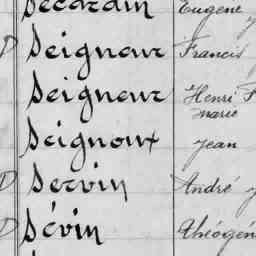 Secardin Eugène
D Seigneur Francis
Seigneur Henri F
marie
Seignoux Jean
D Servin André
D Sévin Théogèn